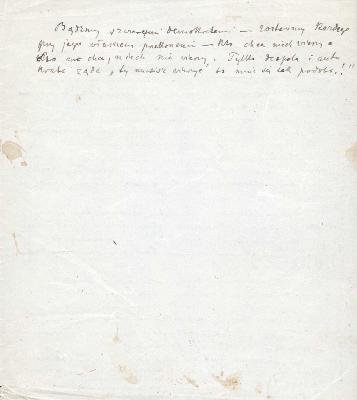 Bądźmy szczerymi demokratami — zostawmy każdego
przy jego własnem przekonaniu — Kto chce niech wierzy a
kto nie chce, niech nie wierzy. Tylko despota i auto
krata żąda, by musieć wierzyć, bo mnie się tak podoba..!"